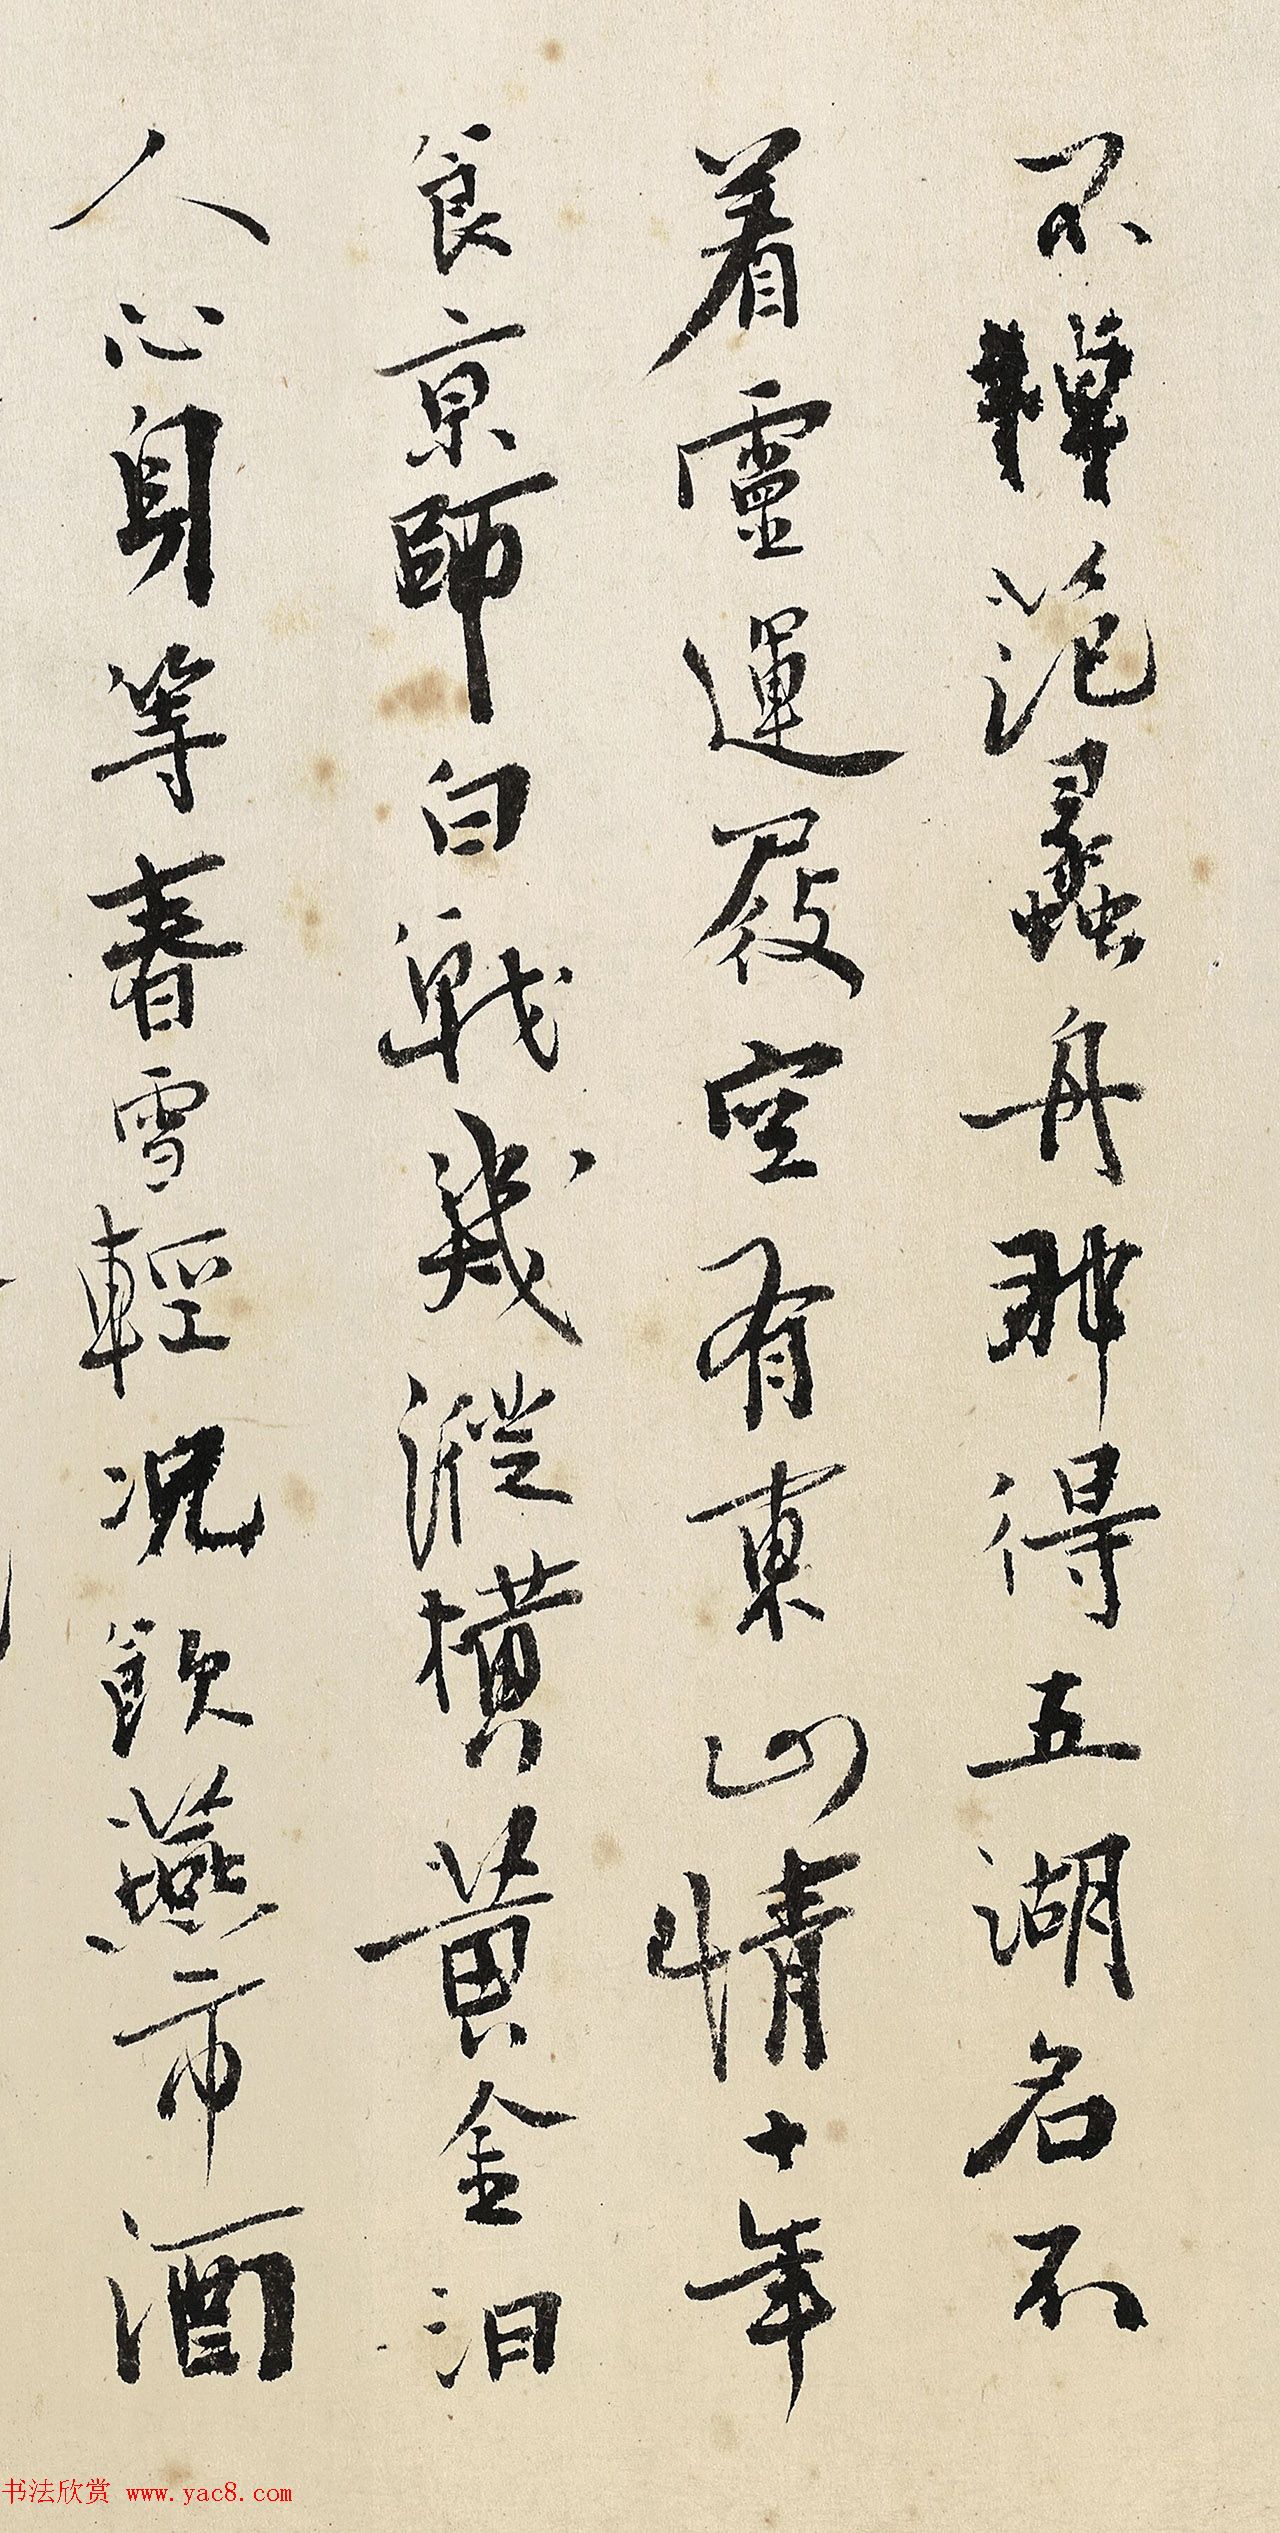 不棹范蠡舟那得五湖名不
着靈運屐空有東山情十年
食京師白戰幾縱橫黃金汨
人心身等春雪輕況飲燕市酒
书法欣赏 www.yac8.com